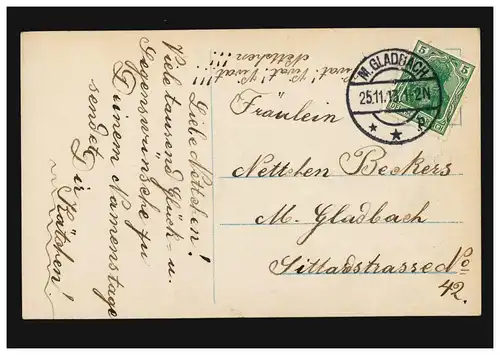 Vivat! Vivat! Vivat!
Nettchen!!!
Liebe Nettchen!
Viel tausend Glück- u.
Segenswünsche zu
Deinem Namenstage
sendet
Dir Kätchen!
M. GLADBACH
25.11.13.1-2N
5
5
Fräulein
Nettchen Beckers
M. Gladbach
Sittardstrasse No
42.